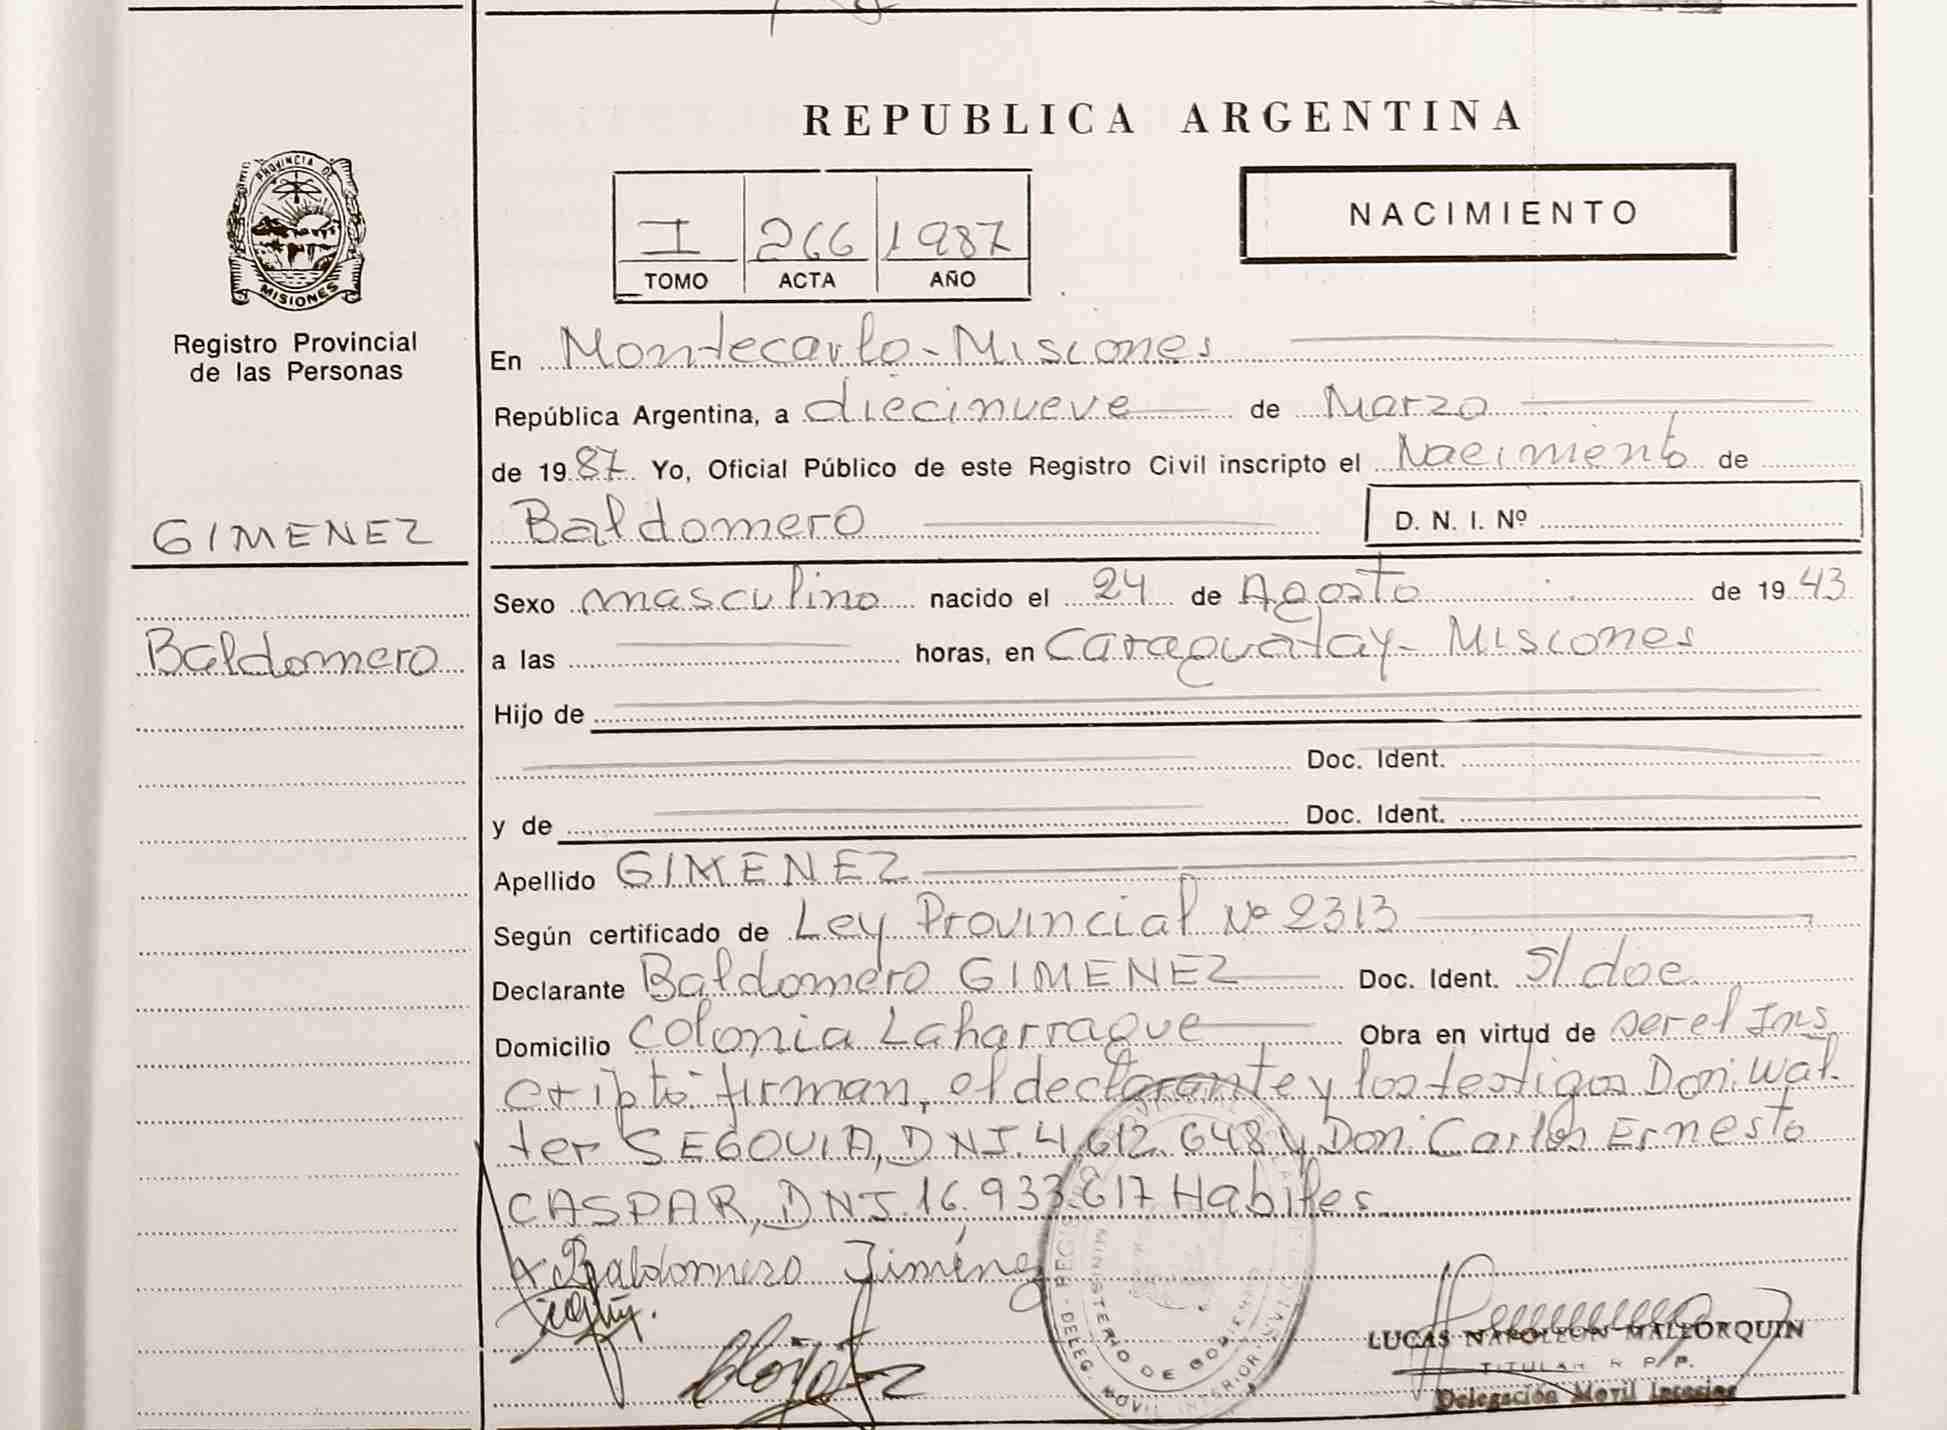 REPUBLICA ARGENTINA
PROVINCIA DE
MISIONES
Registro Provincial
de las Personas
I 266 1987
TOMO ACTA AÑO
NACIMIENTO
En Montecarlo - Misiones
República Argentina, a diecinueve de Marzo
de 19 87. Yo, Oficial Público de este Registro Civil inscripto el Nacimiento de
GIMENEZ
Baldomero D. N. I. Nº
Sexo masculino nacido el 24 de Agosto de 19 43
Baldomero
a las horas, en Caraguatay - Misiones
Hijo de
Doc. Ident.
y de Doc. Ident.
Apellido GIMENEZ
Según certificado de Ley Provincial Nº 2313
Declarante Baldomero GIMENEZ Doc. Ident. S/doc.
Domicilio Colonia Laharrague Obra en virtud de ser el Ins
cripto. firman, el declarante y los testigos Don: Wal
ter SEGOVIA, DNI. 4.612.648 y Don: Carlos Ernesto
CASPAR, DNI. 16.933.617 Habiles.
x Baldomero Jiménez
MINISTERIO DE GOBIERNO
DELEG. MOVIL INTERIOR
LUCAS NAPOLEON MALLORQUIN
TITULAR R. P. P.
Delegación Movil Interior